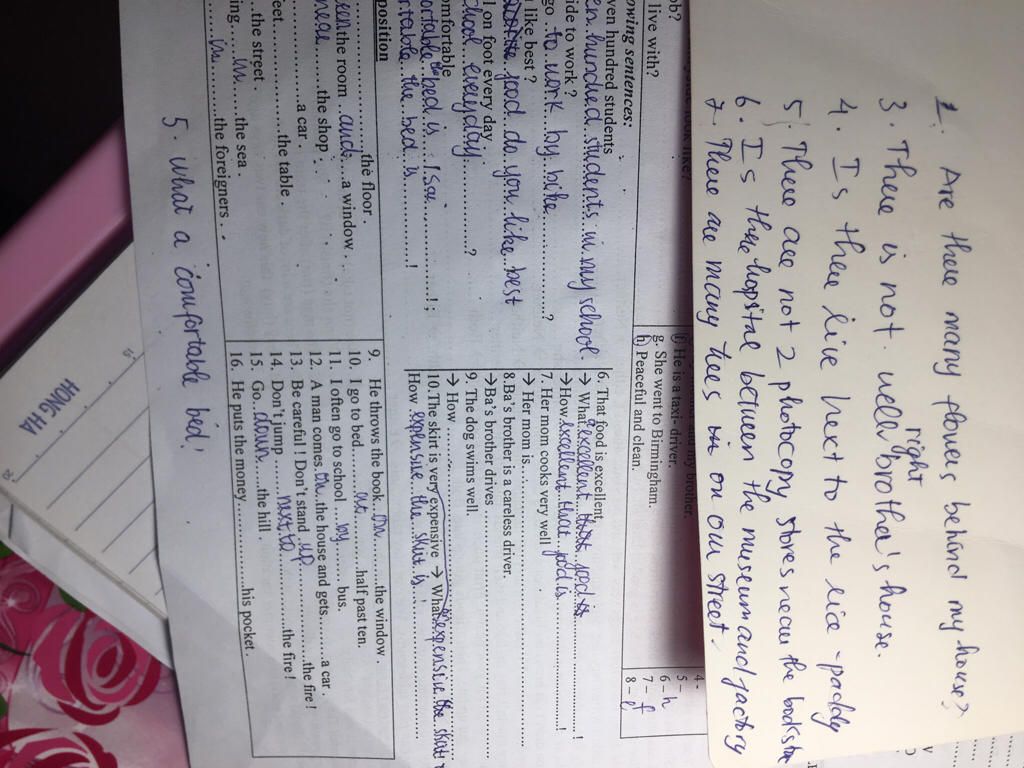 1. Are there many flowers behind my house?
3. There is not well brother's house.
right
4. Is there live next to the rice - paddy
5. There are not 2 photocopy stores near the bookstore
6. Is there hopital between the museum and factory
7. There are many trees in on our street.
ob?
live with?
f) He is a taxi- driver.
g. She went to Birmingham.
h) Peaceful and clean.
my brother.
4-
5 -
6 - h
7 - f
8 - e
owing sentences:
ven hundred students
en hundred students in my school.
ide to work ?
go to work by bike ?
like best ?
food do you like best
l on foot every day
chool everyday ?
omfortable
ortable bed is !
rtable the bed is !
6. That food is excellent
→ What excellent food is !
→ How excellent that food is !
7. Her mom cooks very well
→ Her mom is
8.Ba's brother is a careless driver.
→Ba's brother drives
9. The dog swims well.
→ How
10. The skirt is very expensive → What expensive the skirt
How expensive the skirt is
position
the floor .
the room and a window .
the shop .
a car .
feet. the table .
the street .
ing in the sea .
in the foreigners .
9. He throws the book on the window .
10. I go to bed at half past ten.
11. I often go to school by bus.
12. A man comes on the house and gets a car .
13. Be careful ! Don't stand up the fire !
14. Don't jump next to the fire !
15. Go down the hill.
16. He puts the money his pocket .
5. what a comfortable bed!
HONG HA
15
20